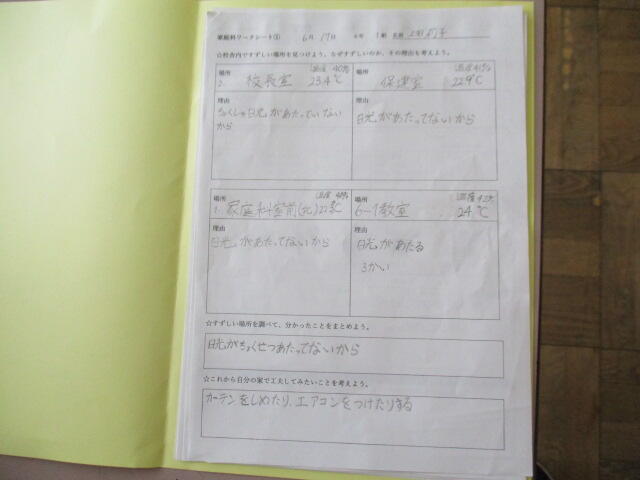 家庭科ワークシート① 6月17日 6年 1組 名前
☆校舎内ですずしい場所を見つけよう。なぜすずしいのか、その理由も考えよう。
場所 湿度 40%
2. 校長室 23.4℃
場所 湿度 41%
保健室 22.9℃
理由
ちょくしゃ日光があたっていない
から
理由
日光があたってないから
場所
1. 家庭科室前(北)
場所
6-1教室 24℃
理由
日光があたってないから
理由
日光があたる
3かい
☆すずしい場所を調べて、分かったことをまとめよう。
日光がちょくせつあたってないから
☆これから自分の家で工夫してみたいことを考えよう。
カーテンをしめたり、エアコンをつけたりする